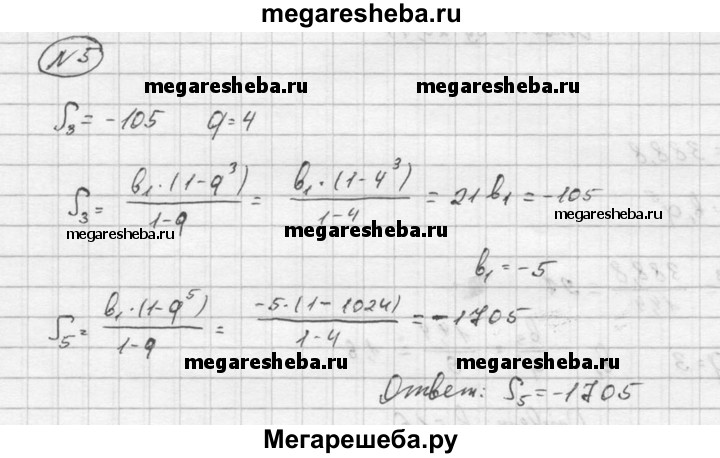 megaresheba.ru
N 5
megaresheba.ru megaresheba.ru
S₃ = -105 q = 4
S₃ = b₁·(1-q³)/1-q = b₁·(1-4³)/1-4 = 21 b₁ = -105
megaresheba.ru megaresheba.ru megaresheba.ru
b₁ = -5
S₅ = b₁·(1-q⁵)/1-q = -5·(1-1024)/1-4 = -1705
megaresheba.ru megaresheba.ru
Ответ: S₅ = -1705
Мегарешеба.ру